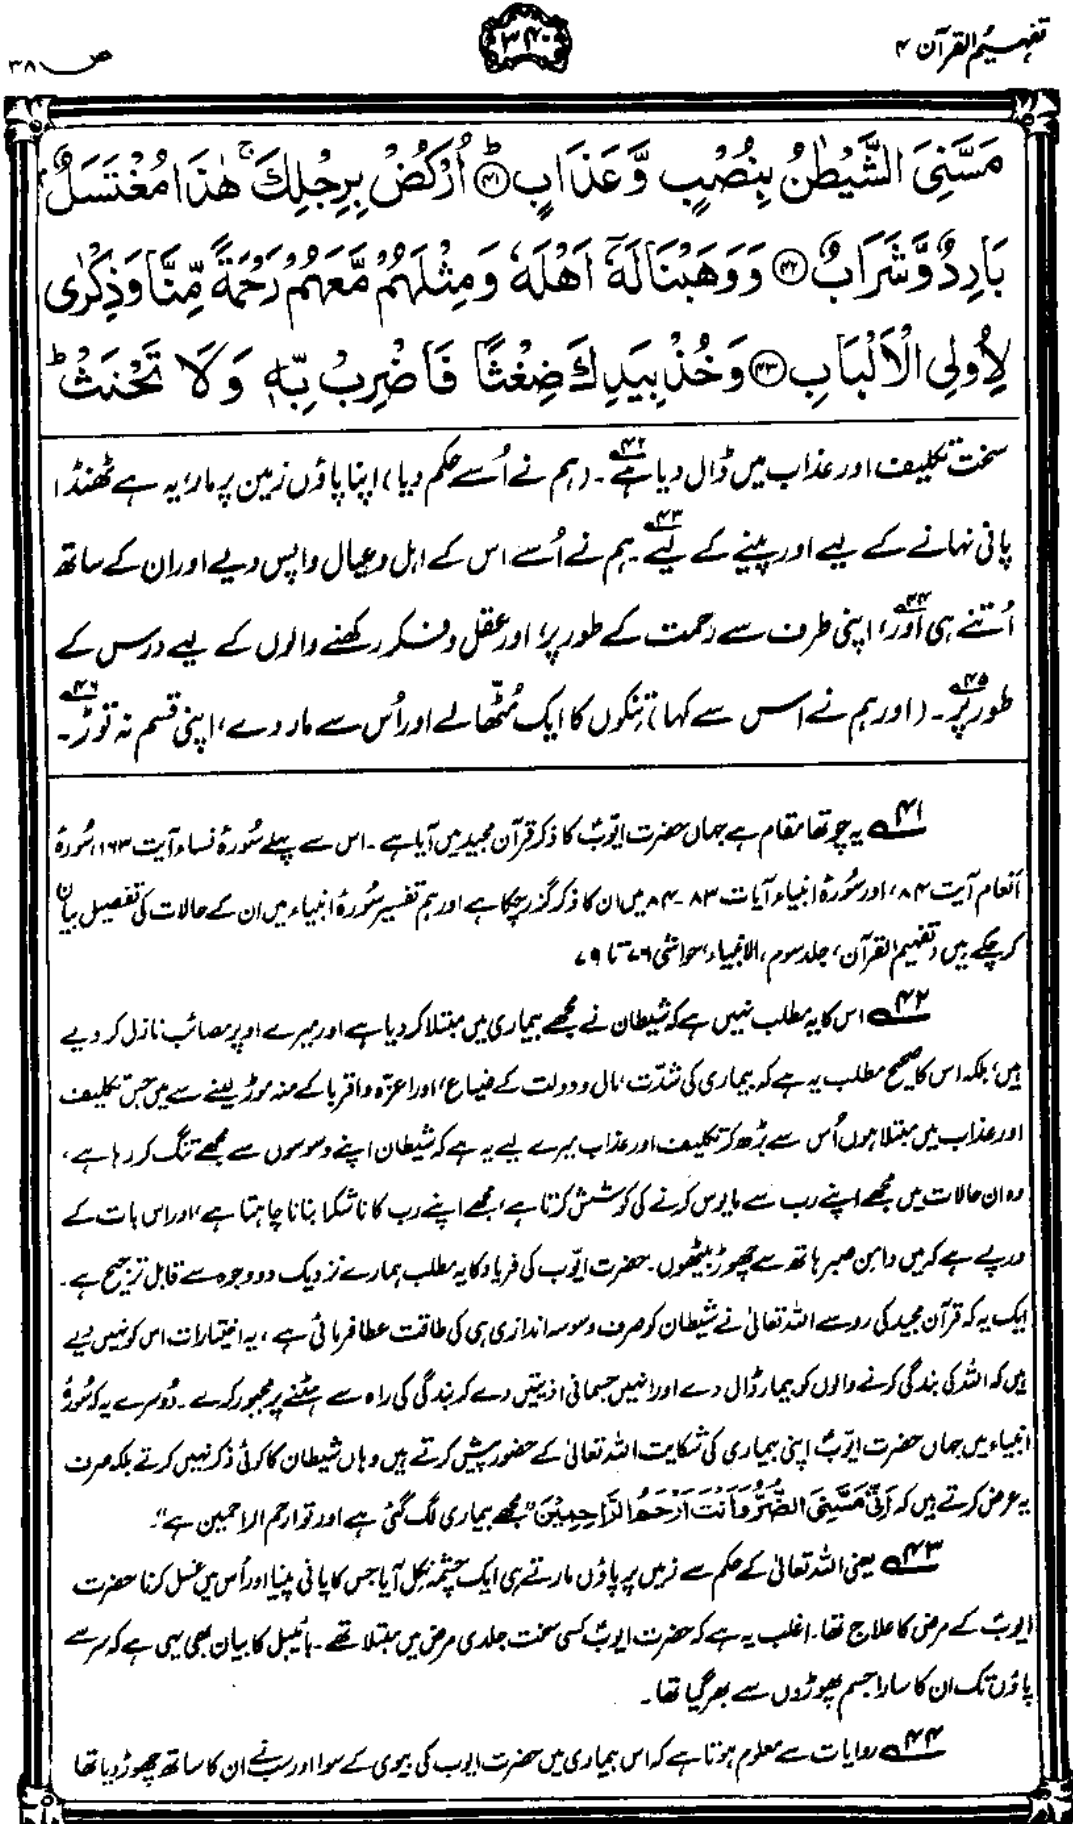 تفہیم القرآن ۴
۳۴۰
ص ۳۸
مَسَّنِیَ الشَّیْطٰنُ بِنُصْبٍ وَّعَذَابٍ ﴿۴۱﴾ؕ اُرْکُضْ بِرِجْلِکَ ۚ ھٰذَا مُغْتَسَلٌۢ
بَارِدٌ وَّشَرَابٌ ﴿۴۲﴾ وَوَھَبْنَا لَہٗۤ اَھْلَہٗ وَمِثْلَھُمْ مَّعَھُمْ رَحْمَۃً مِّنَّا وَذِکْرٰی
لِاُولِی الْاَلْبَابِ ﴿۴۳﴾ وَخُذْ بِیَدِکَ ضِغْثًا فَاضْرِبْ بِّہٖ وَلَا تَحْنَثْ ؕ
سخت تکلیف اور عذاب میں ڈال دیا ہے۴۲۔ (ہم نے اُسے حکم دیا) اپنا پاؤں زمین پر مار، یہ ہے ٹھنڈا
پانی نہانے کے لیے اور پینے کے لیے۴۳۔ ہم نے اُسے اس کے اہل و عیال واپس دیے اور ان کے ساتھ
اُتنے ہی اور۴۴، اپنی طرف سے رحمت کے طور پر، اور عقل و فکر رکھنے والوں کے لیے درس کے
طور پر۴۵۔ (اور ہم نے اس سے کہا) تِنکوں کا ایک مُٹّھا لے اور اُس سے مار دے، اپنی قسم نہ توڑ۴۶۔
۴۱ یہ چوتھا مقام ہے جہاں حضرت ایوبؑ کا ذکر قرآن مجید میں آیا ہے۔ اس سے پہلے سُورۂ نساء آیت ۱۶۳، سُورۂ
اَنعام آیت ۸۴، اور سُورۂ انبیاء آیات ۸۳-۸۴ میں ان کا ذکر گزر چکا ہے اور ہم تفسیر سُورۂ انبیاء میں ان کے حالات کی تفصیل بیان
کر چکے ہیں (تفہیم القرآن، جلد سوم، الانبیاء، حواشی ۷۶ تا ۷۹
۴۲ اس کا یہ مطلب نہیں ہے کہ شیطان نے مجھے بیماری میں مبتلا کر دیا ہے اور میرے اوپر مصائب نازل کر دیے
ہیں، بلکہ اس کا صحیح مطلب یہ ہے کہ بیماری کی شدّت، مال و دولت کے ضیاع، اور اعزّہ و اقربا کے منہ موڑ لینے سے میں جس تکلیف
اور عذاب میں مبتلا ہوں اُس سے بڑھ کر تکلیف اور عذاب میرے لیے یہ ہے کہ شیطان اپنے وسوسوں سے مجھے تنگ کر رہا ہے،
وہ ان حالات میں مجھے اپنے رب سے مایوس کرنے کی کوشش کرتا ہے، مجھے اپنے رب کا ناشکرا بنانا چاہتا ہے، اور اس بات کے
درپے ہے کہ میں دامن صبر ہاتھ سے چھوڑ بیٹھوں۔ حضرت ایوّب کی فریاد کا یہ مطلب ہمارے نزدیک دو وجوہ سے قابل ترجیح ہے۔
ایک یہ کہ قرآن مجید کی رو سے اللہ تعالیٰ نے شیطان کو صرف وسوسہ اندازی ہی کی طاقت عطا فرمائی ہے، یہ اختیارات اس کو نہیں دیے
ہیں کہ اللہ کی بندگی کرنے والوں کو بیمار ڈال دے اور انہیں جسمانی اذیتیں دے کر بندگی کی راہ سے ہٹنے پر مجبور کرے۔ دُوسرے یہ کہ سُورۂ
انبیاء میں جہاں حضرت ایوّبؑ اپنی بیماری کی شکایت اللہ تعالیٰ کے حضور پیش کرتے ہیں وہاں شیطان کا کوئی ذکر نہیں کرتے بلکہ صرف
یہ عرض کرتے ہیں کہ اَنِّیْ مَسَّنِیَ الضُّرُّ وَاَنْتَ اَرْحَمُ الرَّاحِمِیْنَ "مجھے بیماری لگ گئی ہے اور تو ارحم الراحمین ہے"۔
۴۳ یعنی اللہ تعالیٰ کے حکم سے زمین پر پاؤں مارتے ہی ایک چشمہ نکل آیا جس کا پانی پینا اور اُس میں غسل کرنا حضرت
ایوبؑ کے مرض کا علاج تھا۔ اغلب یہ ہے کہ حضرت ایوبؑ کسی سخت جلدی مرض میں مبتلا تھے۔ بائیبل کا بیان بھی یہی ہے کہ سر سے
پاؤں تک ان کا سارا جسم پھوڑوں سے بھر گیا تھا۔
۴۴ روایات سے معلوم ہوتا ہے کہ اس بیماری میں حضرت ایوب کی بیوی کے سوا اور سب نے ان کا ساتھ چھوڑ دیا تھا